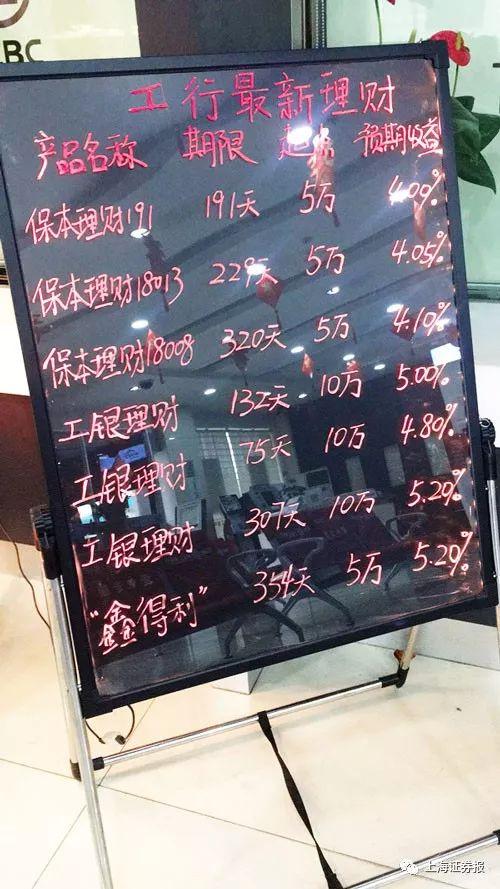 BC
工行最新理财
产品名称 期限 起点 预期收益
保本理财191 191天 5万 4.00%
保本理财18013 229天 5万 4.05%
保本理财18008 320天 5万 4.10%
工银理财 132天 10万 5.00%
工银理财 75天 10万 4.80%
工银理财 307天 10万 5.20%
"鑫得利" 354天 5万 5.20%
上海证券报